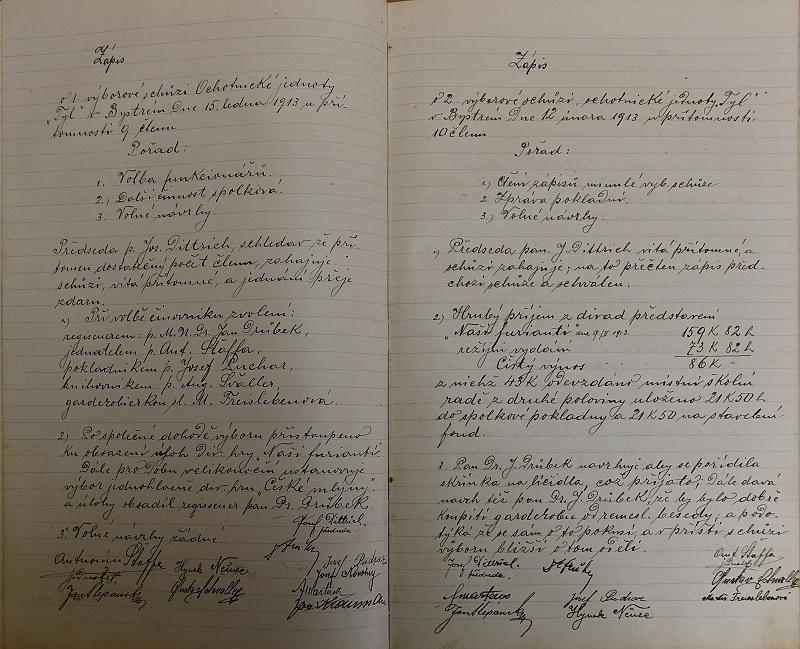 Zápis
o 1. výborové schůzi Ochotnické jednoty
"Tyl" v Bystrém Dne 15. ledna 1913 u pří-
tomnosti 9 členu
Pořad:
1. Volba funkcionářů.
2.) Další činnost spolková.
3. Volné návrhy.
Předseda p. Jos. Dittrich, schledav že pří-
tomen dostatečný počet členu, zahajuje
schůzi, vítá přítomné, a jednání přeje
zdaru.
Při volbě činovníku zvoleni:
regisenerem: p. M.N.Dr. Jan Drůbek,
jednatelem p. Ant. Štaffa,
pokladníkem p. Josef Puchar,
knihovníkem p. Aug. Švaller,
garderobierkou sl. M. Freislebenová.
2) Po společné dohodě výboru přistoupeno
ku obsazení úloh Div. hry "Naši furianti".
Dále pro Dobu velikonoční ustanovuje
výbor jednohlasně div. hru "České mlýny"
a úlohy obsadil regisseur pan Dr. Drůbek.
3. Volné návrhy žádné.
Josef Dittrich,
předseda
Antonín Štaffa
jednatel
Hynek Němec
Josef Pudrar
Josef Novotný
Jan Štěpánek
A Martinů
Zápis
o 2. výborové schůzi, ochotnické jednoty "Tyl"
v Bystrém Dne 12 února 1913 u přítomnosti
10 členu
Pořad:
1.) Čtení zápisů minulé výb. schůze
2. Zpráva pokladní.
3.) Volné návrhy.
1) Předseda pan. J. Dittrich vítá přítomné, a
schůzi zahajuje; na to přečten zápis před-
chozí schůze a schválen.
2) Hrubý příjem z divad představení
"Naši furianti" dne 9/II 1913. 159 K 82 h
režijní vydání 73 K 82 h
Čistý výnos 86 K -
z nichž 43 K odevzdáno místní školní
radě z druhé poloviny uloženo 21 K 50 h
do spolkové pokladny a 21 K 50 na stavební
fond.
3. Pan Dr. J. Drůbek navrhuje aby se pořídila
skřínka na líčidla, což přijato; Dále dává
navrh též pan Dr. J. Drůbek, že by bylo dobře
koupiti garderobu od remesl. besedy; a podo-
týká že se sam o to pokusí, a v příští schůzi
výboru bližší o tom sdělí.
Josef Dittrich,
předseda
Ant. Štaffa
jednatel
Jan Štěpánek
Josef Pudrar
Hynek Němec
Marie Freislebenová